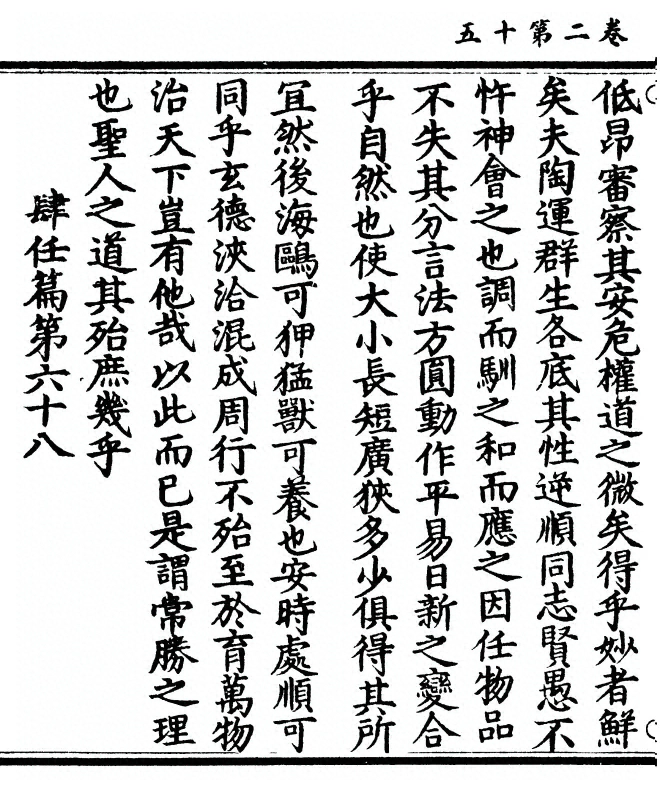 卷二第十五
低昂審察其安危權道之微矣得乎妙者鮮
矣夫陶運群生各底其性逆順同志賢愚不
忤神會之也調而馴之和而應之因任物品
不失其分言法方圓動作平易日新之變合
乎自然也使大小長短廣狹多少俱得其所
冝然後海鷗可狎猛獸可養也安時處順可
同乎玄德浹洽混成周行不殆至於育萬物
治天下豈有他哉以此而已是謂常勝之理
也聖人之道其殆庶幾乎
肆任篇第六十八